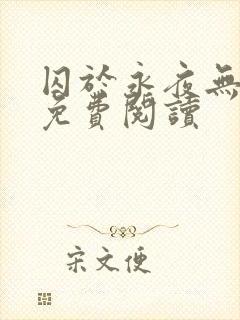 囚於永夜無
免費閱讀
宋文便